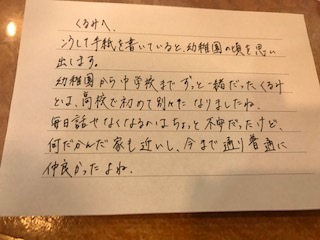 くるみへ
こうして手紙を書いていると、幼稚園の頃を思い
出します。
幼稚園から中学校までずっと一緒だったくるみ
とは、高校で初めて別々になりましたね。
毎日話せなくなるのはちょっと不安だったけど、
何だかんだ家も近いし、今まで通り普通に
仲良かったよね。